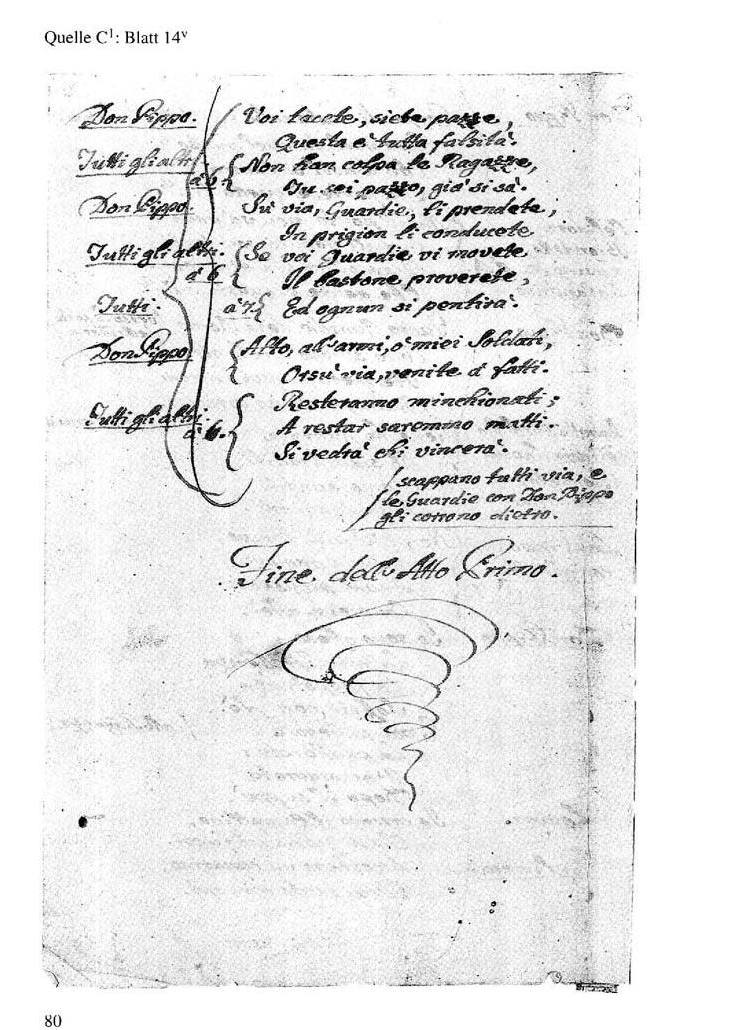 Quelle C¹: Blatt 14ᵛ
Don Pippo. Voi tacete, siete pazze,
Questa è tutta falsità.
Tutti gli altri à 6. Non han colpa le Ragazze,
Tu sei pazzo, già si sà.
Don Pippo. Sù via, Guardie, li prendete,
In prigion li conducete
Tutti gli altri. à 6 Se voi Guardie vi movete
Il bastone proverete,
Tutti. à 7. Ed ognun si pentirà.
Don Pippo Alto, all'armi, o miei Soldati,
Orsù via, venite a' fatti.
Tutti gli altri. à 6. Resteranno minchionati;
A restar saremmo matti.
Si vedrà chi vincerà.
scappano tutti via, e
le Guardie con Don Pippo
gli corrono dietro.
Fine dell'Atto Primo.
80